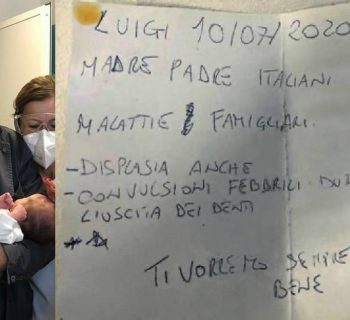 LUIGI 10/07/2020
MADRE PADRE ITALIANI
MALATTIE FAMIGLIARI.
- DISPLASIA ANCHE
- CONVULSIONI FEBBRILI
L'USCITA DEI DENTI
TI VORREMO SEMPRE
BENE